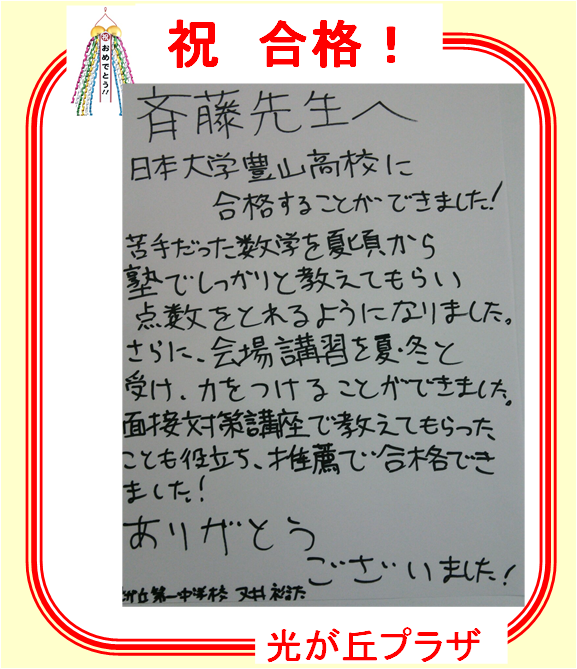 祝 合格！
祝
おめでとう!!
斉藤先生へ
日本大学豊山高校に
合格することができました!
苦手だった数学を夏頃から
塾でしっかりと教えてもらい
点数をとれるようになりました。
さらに、会場講習を夏・冬と
受け、力をつけることができました。
面接対策講座で教えてもらった
ことも役立ち、推薦で合格でき
ました!
ありがとう
ございました!
が丘第一中学校
光が丘プラザ